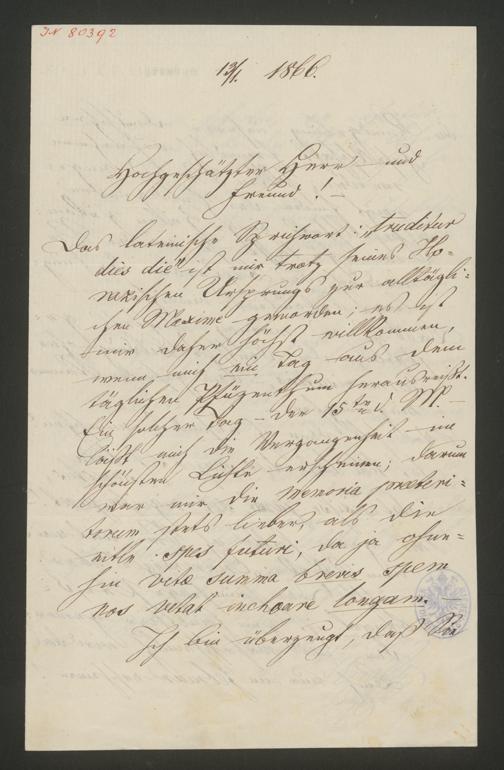 IN 80392
13/1. 1866.
Hochgeschätzter Herr und
Freund! —
Das lateinische Sprichwort: „truditur
dies die“ ist mir trotz seines Ho-
razischen Ursprungs zur alltägli-
chen Maxime geworden; es ist
mir daher höchst willkommen,
wenn mich ein Tag aus dem
täglichen herausreißt.
Ein solcher Tag – der 15te d. M –
läßt mich die Vergangenheit im
schönsten Lichte erscheinen; darum
war mir die memoria praeteri-
torum stets lieber, als die
eitle spes futuri, da ja ohne-
hin vitae summa brevis spem
nos vetat inchoare longam. —
Ich bin überzeugt, daß Sie